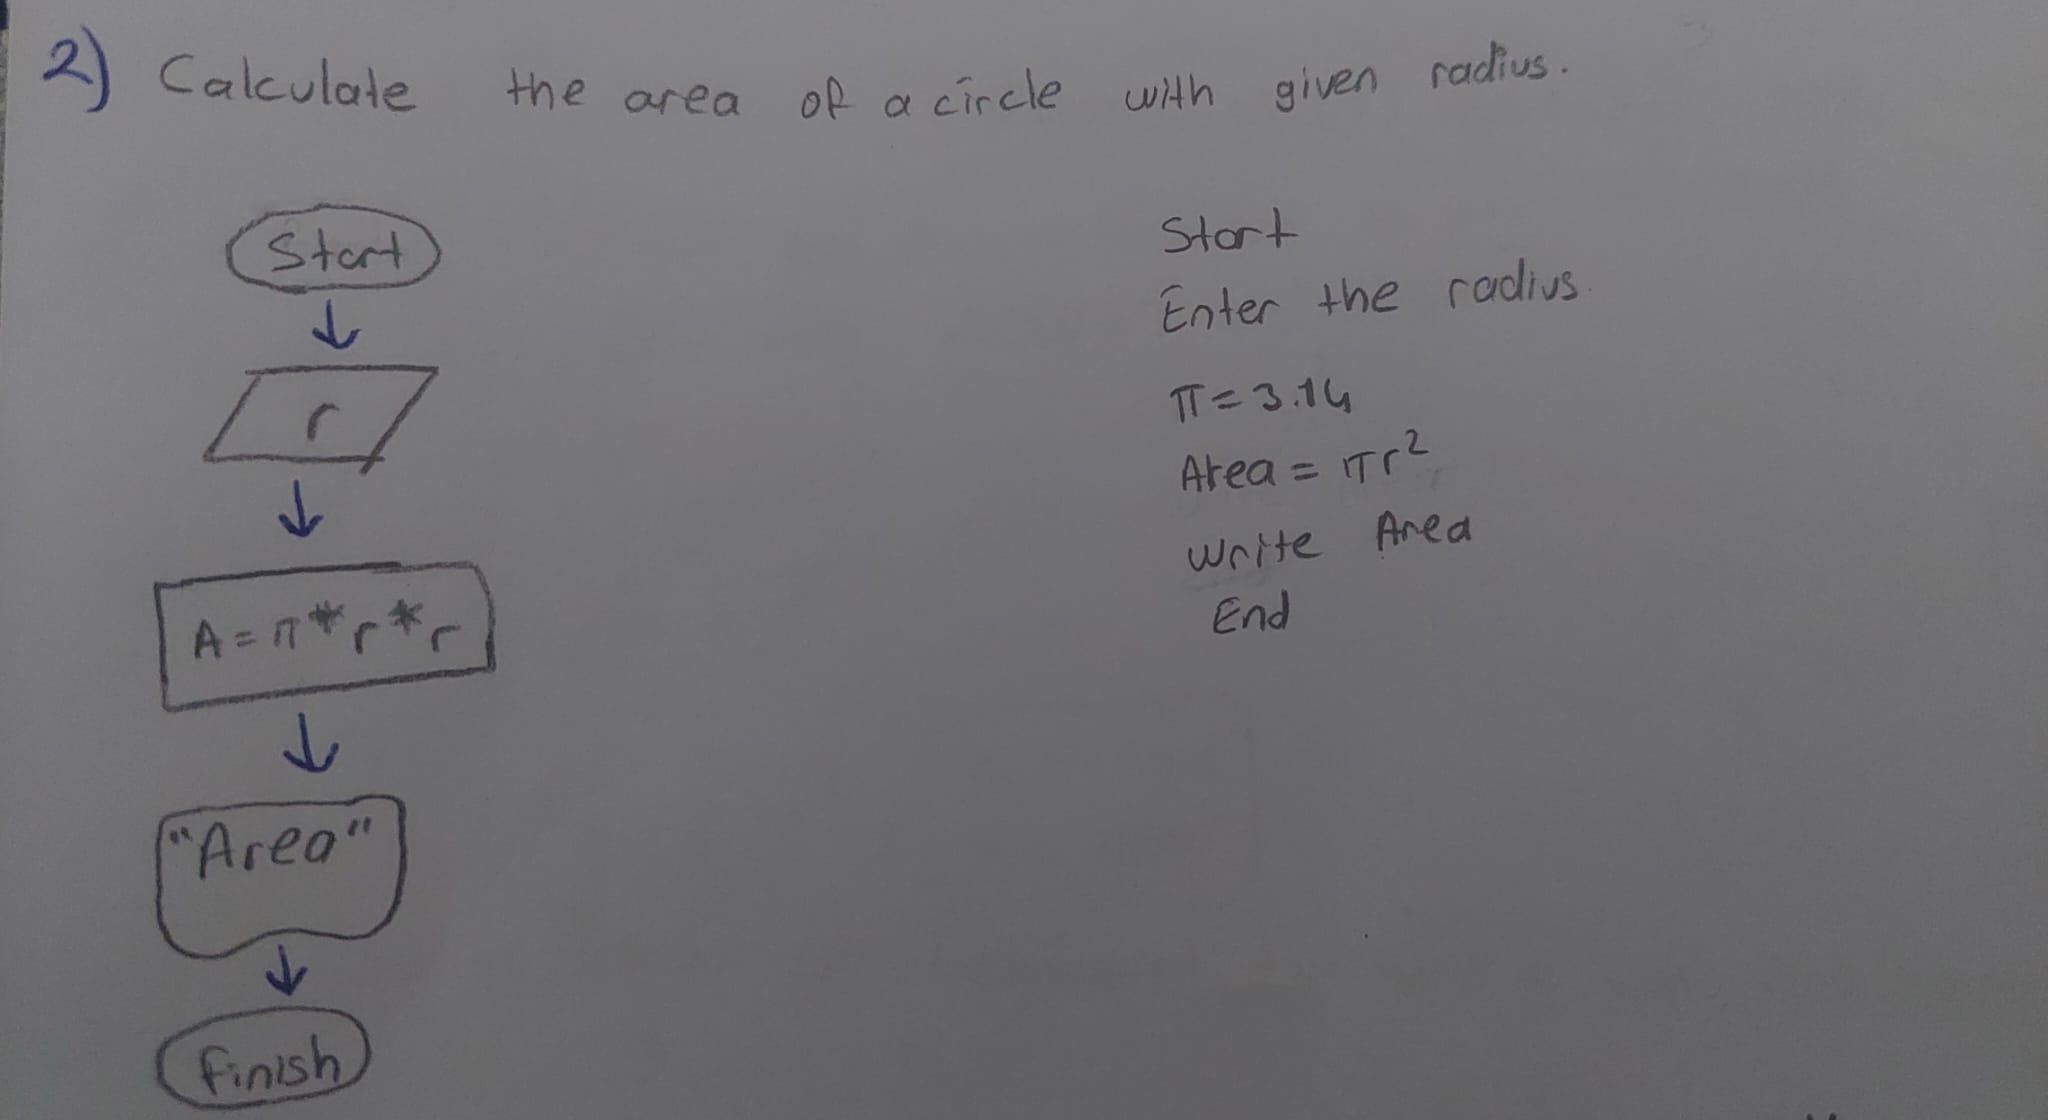 2) Calculate the area of a circle with given radius.
Start
r
A = π * r * r
"Area"
finish
Start
Enter the radius
π = 3.14
Area = πr²
write Area
End